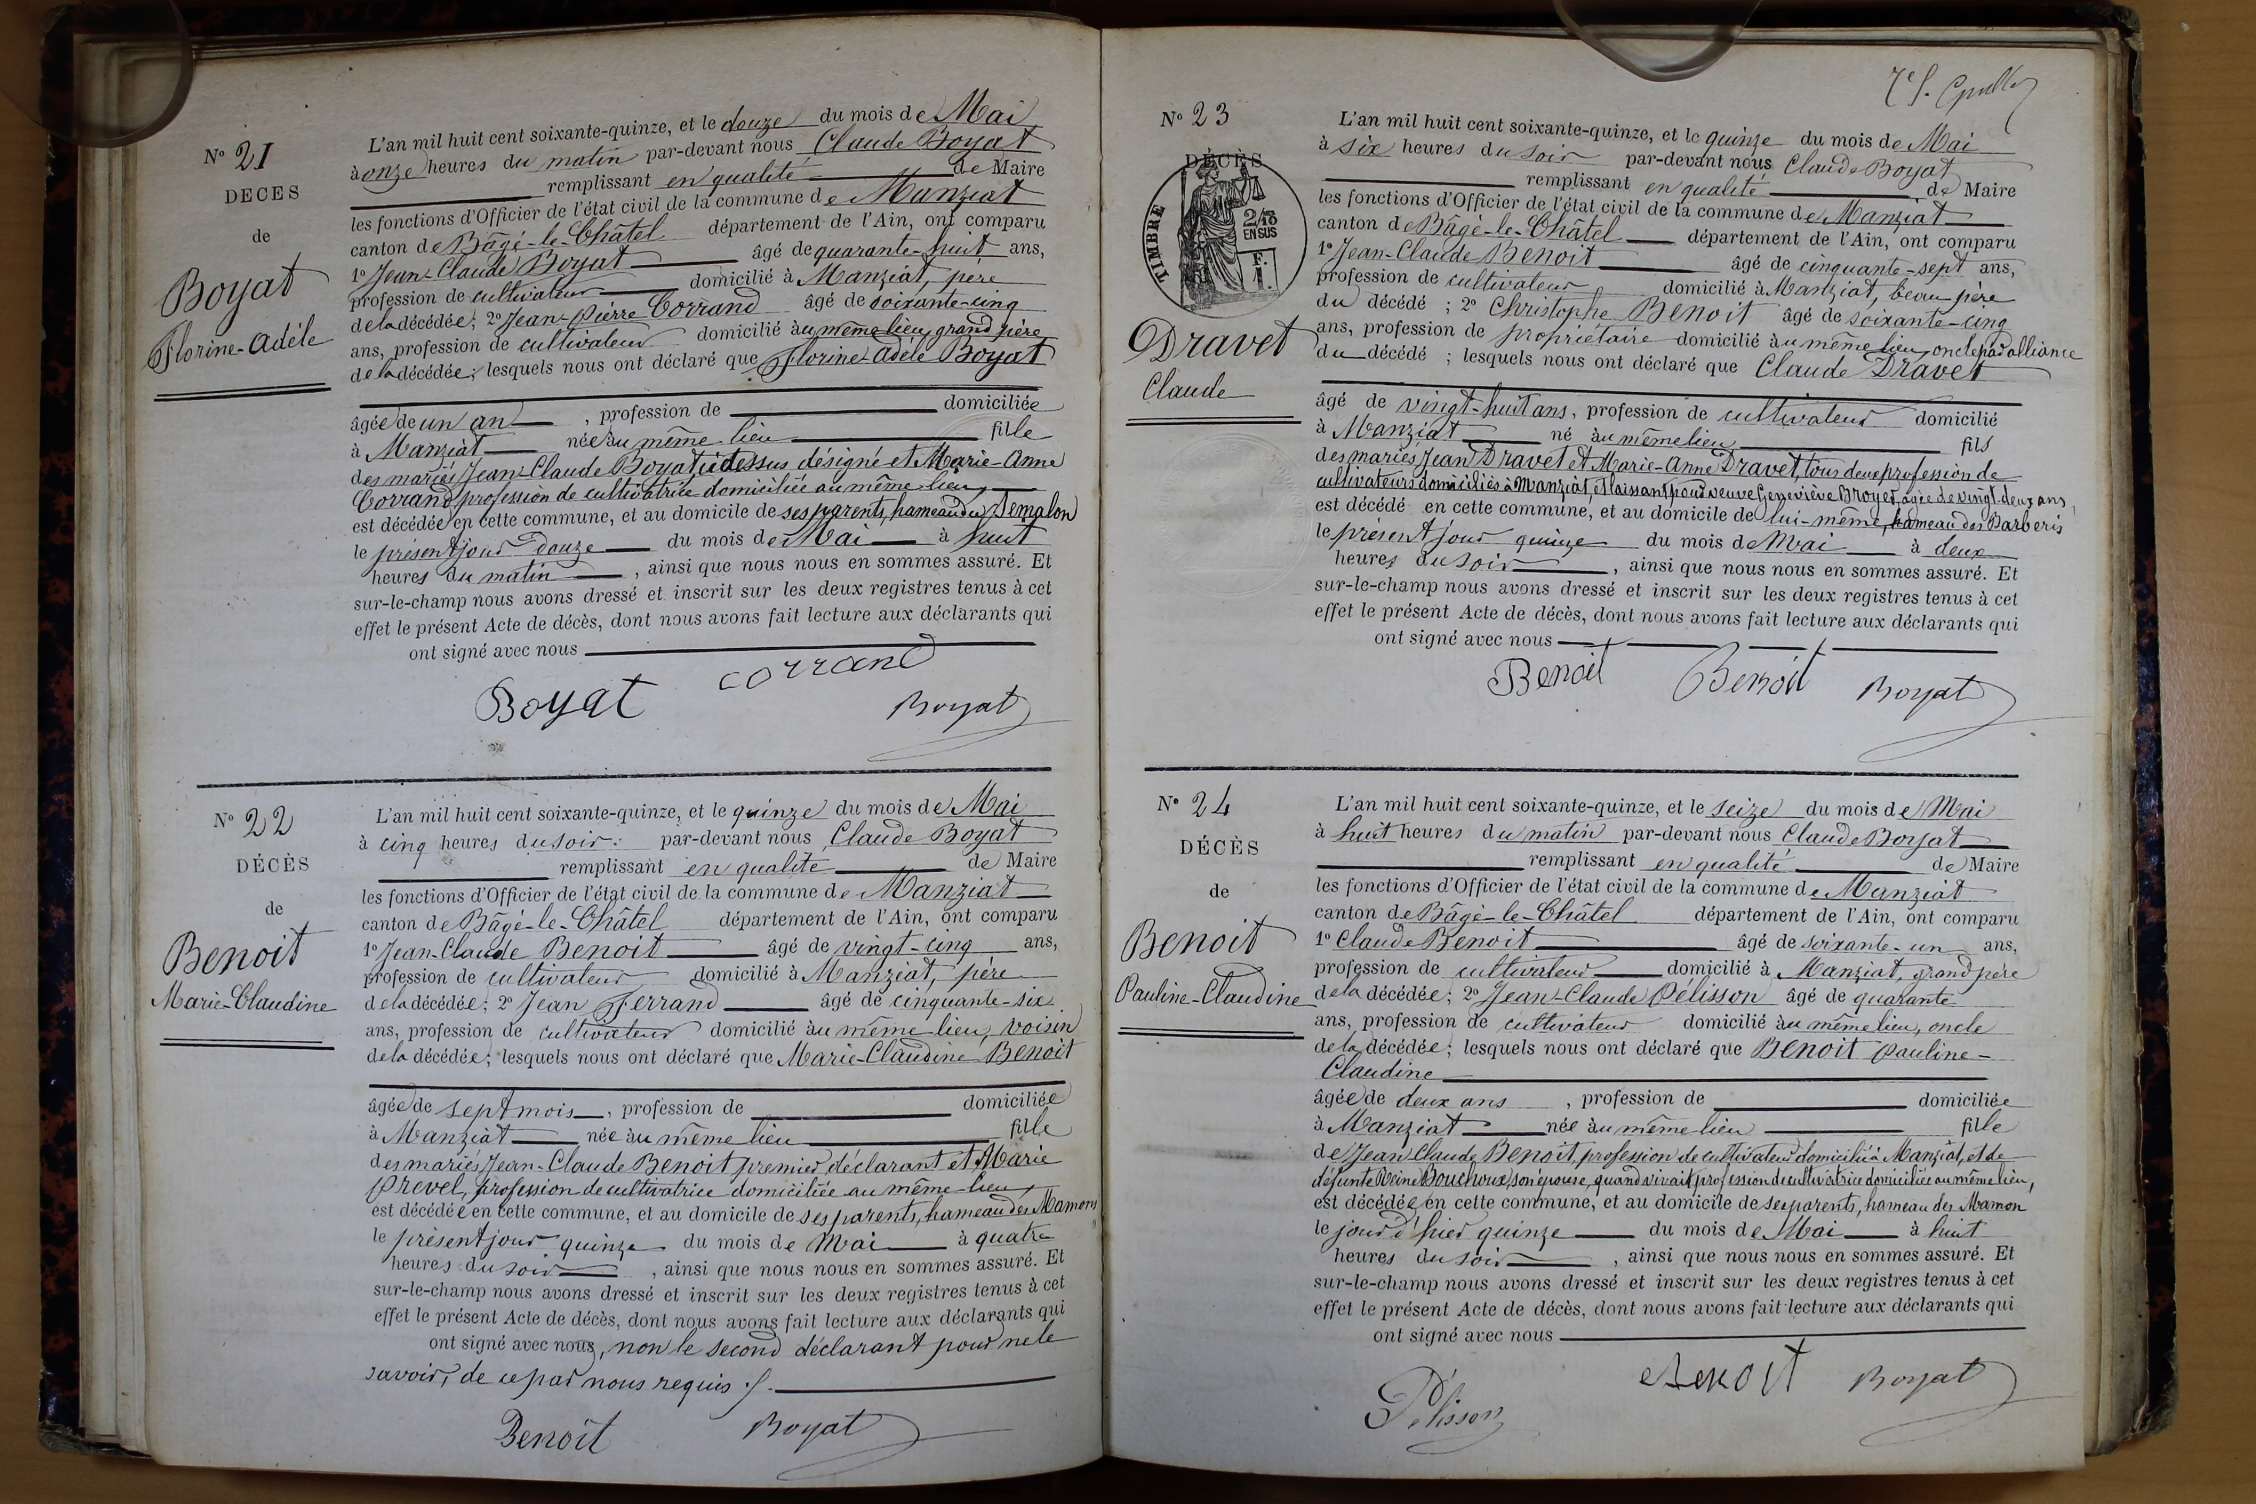 N° 21
DECES
de
Boyat
Florine-Adèle
L'an mil huit cent soixante-quinze, et le douze du mois de Mai
à onze heures du matin par-devant nous Claude Boyat
remplissant en qualité de Maire
les fonctions d'Officier de l'état civil de la commune de Manziat
canton de Bâgé-le-Châtel département de l'Ain, ont comparu
1° Jean-Claude Boyat âgé de quarante-huit ans,
profession de cultivateur domicilié à Manziat, père
de la décédée; 2° Jean-Pierre Corrand âgé de soixante-cinq
ans, profession de cultivateur domicilié au même lieu, grand père
de la décédée; lesquels nous ont déclaré que Florine Adèle Boyat
âgée de un an, profession de domiciliée
à Manziat née au même lieu fille
des mariés Jean-Claude Boyat ci dessus désigné et Marie-Anne
Corrand profession de cultivatrice domiciliée au même lieu,
est décédée en cette commune, et au domicile de ses parents, hameau du Semalon
le présent jour douze du mois de Mai à huit
heures du matin, ainsi que nous nous en sommes assuré. Et
sur-le-champ nous avons dressé et inscrit sur les deux registres tenus à cet
effet le présent Acte de décès, dont nous avons fait lecture aux déclarants qui
ont signé avec nous
corrand
Boyat
Boyat
N° 22
DÉCÈS
de
Benoit
Marie-Claudine
L'an mil huit cent soixante-quinze, et le quinze du mois de Mai
à cinq heures du soir. par-devant nous Claude Boyat
remplissant en qualité de Maire
les fonctions d'Officier de l'état civil de la commune de Manziat
canton de Bâgé-le-Châtel département de l'Ain, ont comparu
1° Jean-Claude Benoit âgé de vingt-cinq ans,
profession de cultivateur domicilié à Manziat, père
de la décédée; 2° Jean Ferrand âgé de cinquante-six
ans, profession de cultivateur domicilié au même lieu, voisin
de la décédée; lesquels nous ont déclaré que Marie-Claudine Benoit
âgée de sept mois, profession de domiciliée
à Manziat née au même lieu fille
des mariés Jean-Claude Benoit premier déclarant et Marie
Prevel, profession de cultivatrice domiciliée au même-lieu,
est décédée en cette commune, et au domicile de ses parents, hameau des Mamons
le présent jour quinze du mois de Mai à quatre
heures du soir, ainsi que nous nous en sommes assuré. Et
sur-le-champ nous avons dressé et inscrit sur les deux registres tenus à cet
effet le présent Acte de décès, dont nous avons fait lecture aux déclarants qui
ont signé avec nous, non le second déclarant pour ne le
savoir, de ce par nous requis ./.
Benoit Boyat
N° 23
DÉCÈS
TIMBRE
2/10
EN SUS
F.
1.
Dravet
Claude
L'an mil huit cent soixante-quinze, et le quinze du mois de Mai
à six heures du soir par-devant nous Claude Boyat
remplissant en qualité de Maire
les fonctions d'Officier de l'état civil de la commune de Manziat
canton de Bâgé-le-Châtel département de l'Ain, ont comparu
1° Jean-Claude Benoit âgé de cinquante-sept ans,
profession de cultivateur domicilié à Manziat, beau père
du décédé ; 2° Christophe Benoit âgé de soixante-cinq
ans, profession de propriétaire domicilié au même lieu, oncle par alliance
du décédé ; lesquels nous ont déclaré que Claude Dravet
âgé de vingt-huit ans, profession de cultivateur domicilié
à Manziat né au même lieu fils
des mariés Jean Dravet et Marie-Anne Dravet, tous deux profession de
cultivateurs domiciliés à Manziat, et laissant pour veuve Geneviève Broyer, âgée de vingt-deux ans,
est décédé en cette commune, et au domicile de lui-même, hameau des Barberis
le présent jour quinze du mois de Mai à deux
heures du soir, ainsi que nous nous en sommes assuré. Et
sur-le-champ nous avons dressé et inscrit sur les deux registres tenus à cet
effet le présent Acte de décès, dont nous avons fait lecture aux déclarants qui
ont signé avec nous
Benoit Benoit Boyat
N° 24
DÉCÈS
de
Benoit
Pauline-Claudine
L'an mil huit cent soixante-quinze, et le seize du mois de Mai
à huit heures du matin par-devant nous Claude Boyat
remplissant en qualité de Maire
les fonctions d'Officier de l'état civil de la commune de Manziat
canton de Bâgé-le-Châtel département de l'Ain, ont comparu
1° Claude Benoit âgé de soixante-un ans,
profession de cultivateur domicilié à Manziat, grand père
de la décédée; 2° Jean-Claude Pélisson âgé de quarante
ans, profession de cultivateur domicilié au même lieu, oncle
de la décédée; lesquels nous ont déclaré que Benoit Pauline-
Claudine
âgée de deux ans, profession de domiciliée
à Manziat née au même lieu fille
de Jean Claude Benoit, profession de cultivateur domicilié à Manziat, et de
défunte Reine Bouchoux, son épouse, quand vivait profession de cultivatrice domiciliée au même lieu,
est décédée en cette commune, et au domicile de ses parents, hameau des Mamon
le jour d'hier quinze du mois de Mai à huit
heures du soir, ainsi que nous nous en sommes assuré. Et
sur-le-champ nous avons dressé et inscrit sur les deux registres tenus à cet
effet le présent Acte de décès, dont nous avons fait lecture aux déclarants qui
ont signé avec nous
Benoit Boyat
Pélisson